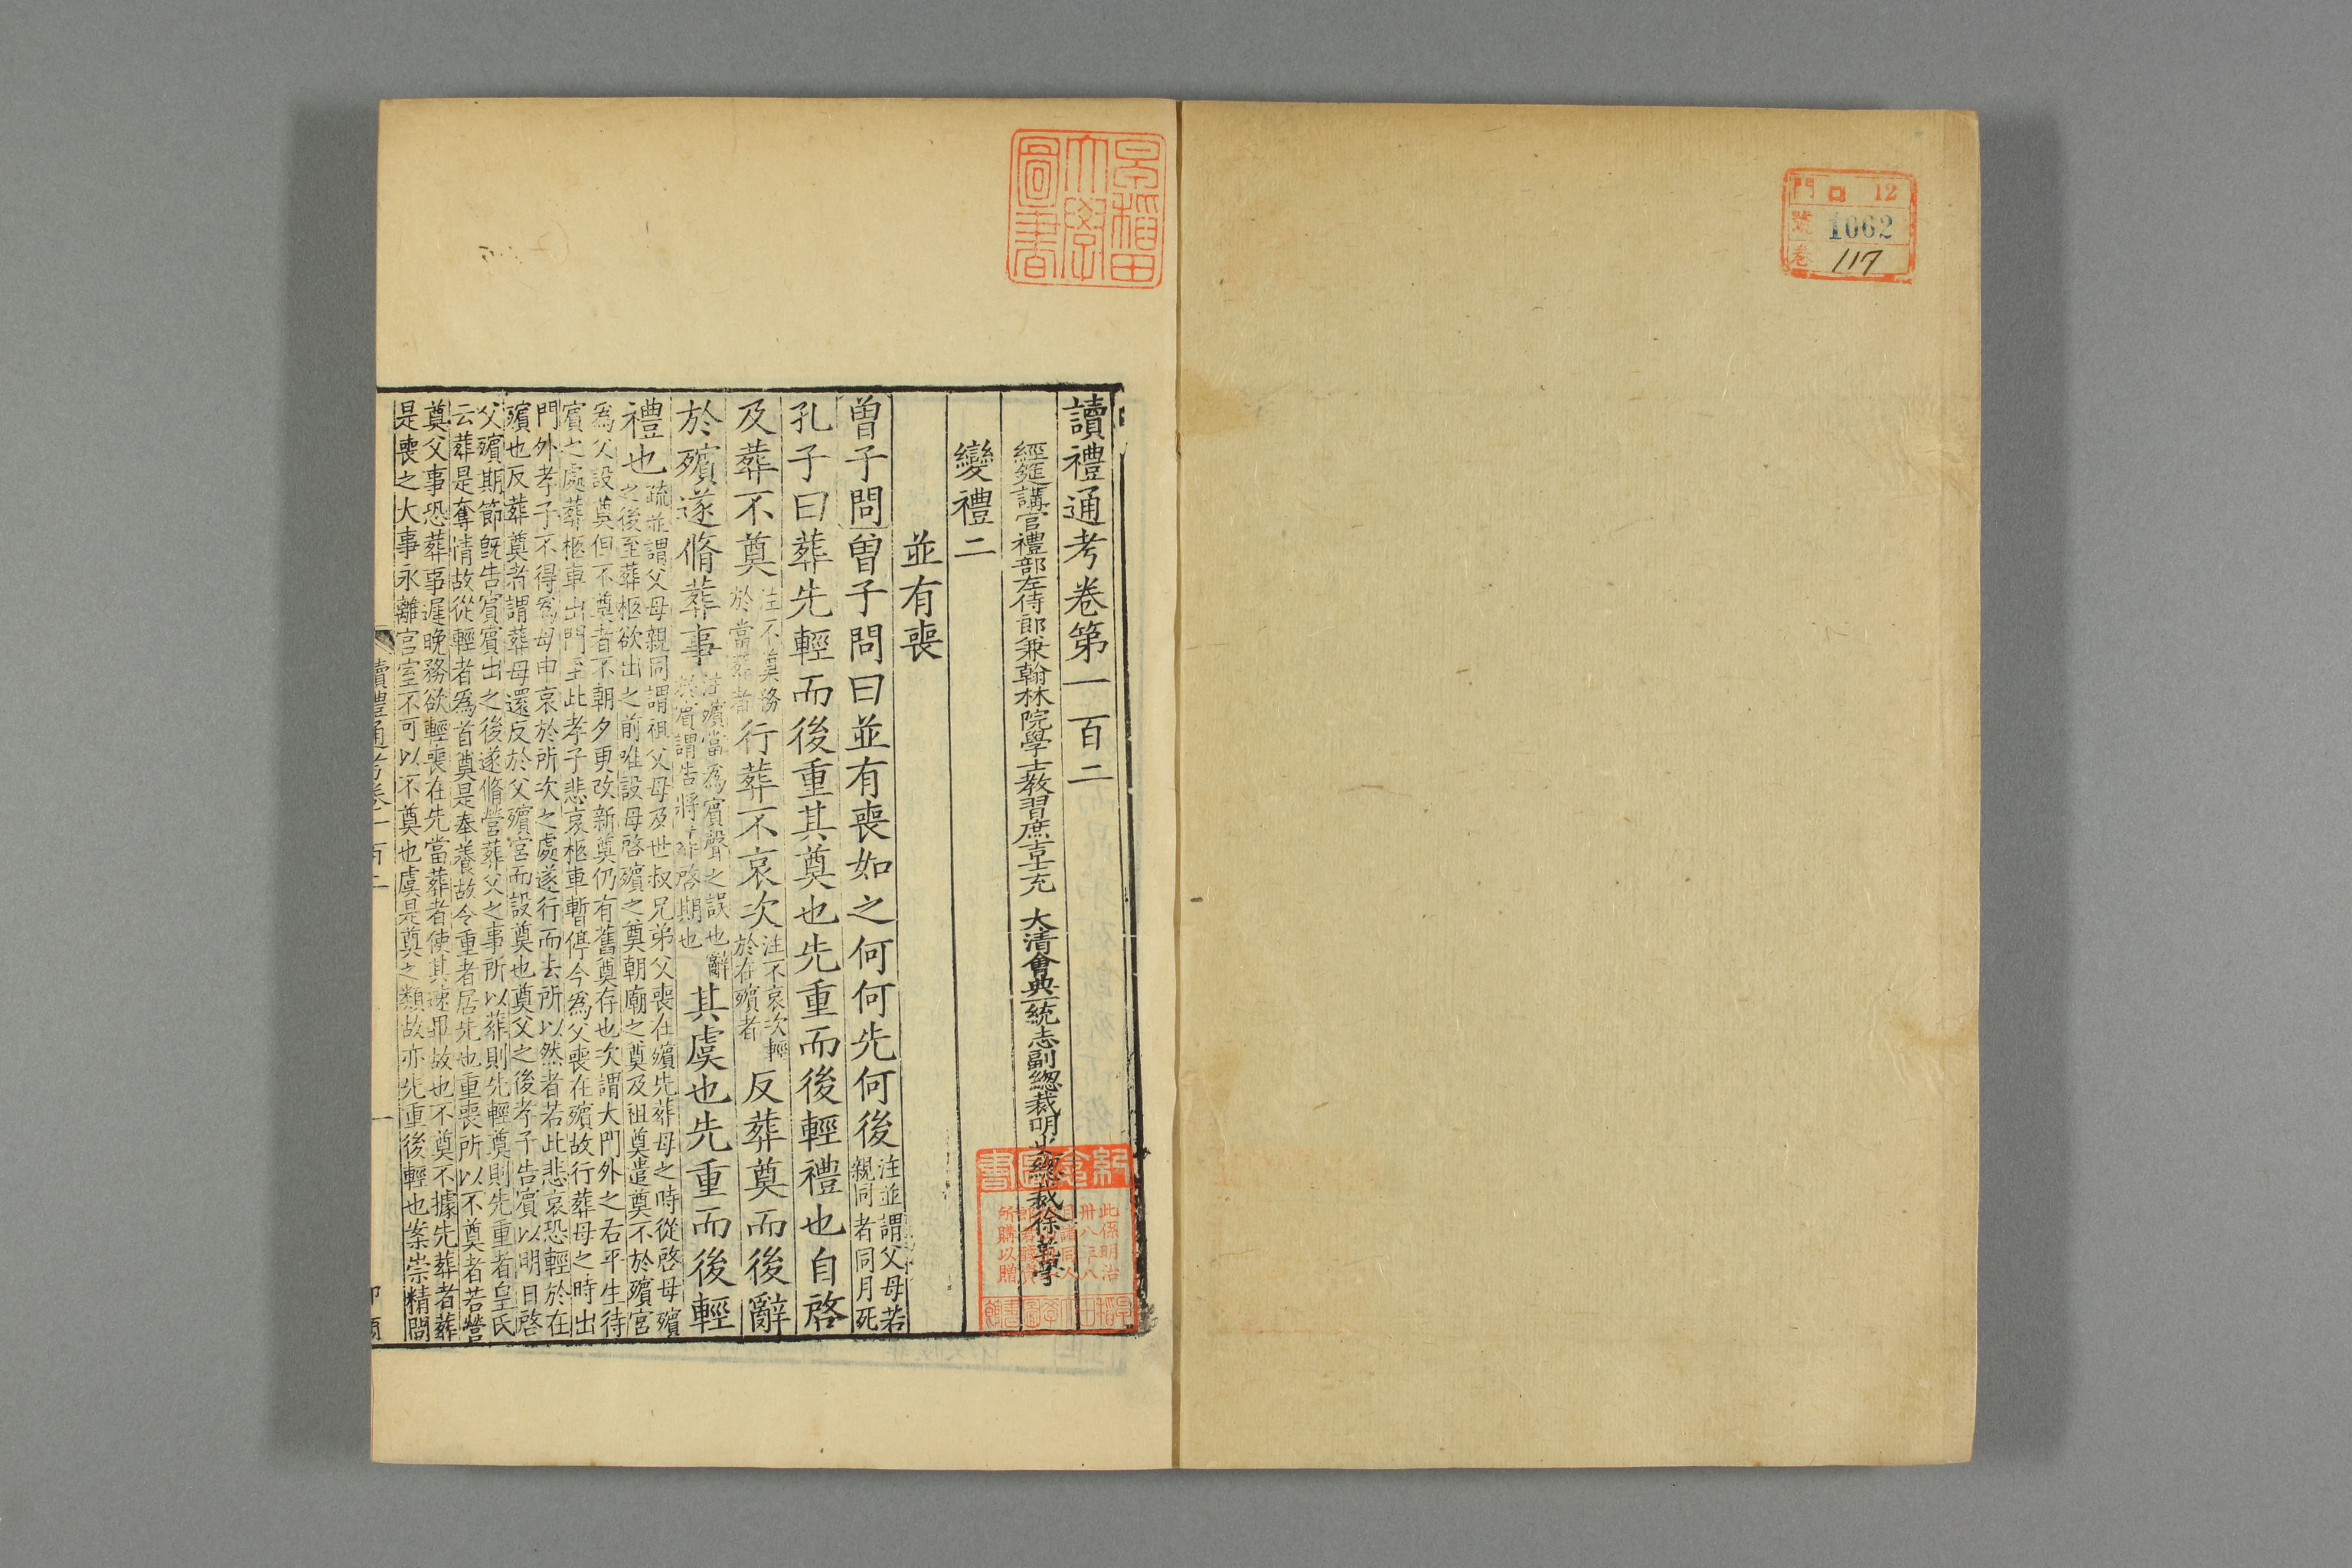 門 ロ 12
號 1062
卷 117
早稲田
大學
圖書
讀禮通考卷第一百二
經筵講官禮部左侍郎兼翰林院學士教習庶吉士充 大清會典一統志副總裁明史總裁徐乾學
變禮二
並有喪
曽子問曽子問曰並有喪如之何何先何後注並謂父母若
親同者同月死
孔子曰葬先輕而後重其奠也先重而後輕禮也自啓
及葬不奠注不奠務
於當葬者行葬不哀次注不哀次輕
於在殯者反葬奠而後辭
於殯遂脩葬事注殯當為賓聲之誤也辭
於賓謂告將葬啓期也其虞也先重而後輕
禮也疏並謂父母親同謂祖父母及世叔兄弟父喪在殯先葬母之時從啓母殯
之後至葬柩欲出之前唯設母啓殯之奠朝廟之奠及祖奠遣奠不於殯宮
為父設奠但不奠者不朝夕更改新奠仍有舊奠存也次謂大門外之右平生待
賓之處葬柩車出門至此孝子悲哀柩車暫停今為父喪在殯故行葬母之時出
門外孝子不得為母申哀於所次之處遂行而去所以然者若此悲哀恐輕於在
殯也反葬奠者謂葬母還反於父殯宮而設奠也奠父之後孝子告賓以明日啓
父殯期節旣告賓賓出之後遂脩營葬父之事所以葬則先輕奠則先重者皇氏
云葬是奪情故從輕者為首奠是奉養故令重者居先也重喪所以不奠者若營
奠父事恐葬事遲晚務欲輕喪在先當葬者使其速畢故也不奠不據先葬者葬
是喪之大事永離宮室不可以不奠也虞是奠之類故亦先重後輕也案崇精問
讀禮通考卷一百二
一
紀念圖書
此係明治
卅八年八
所購以贈
早稲田大學圖書館